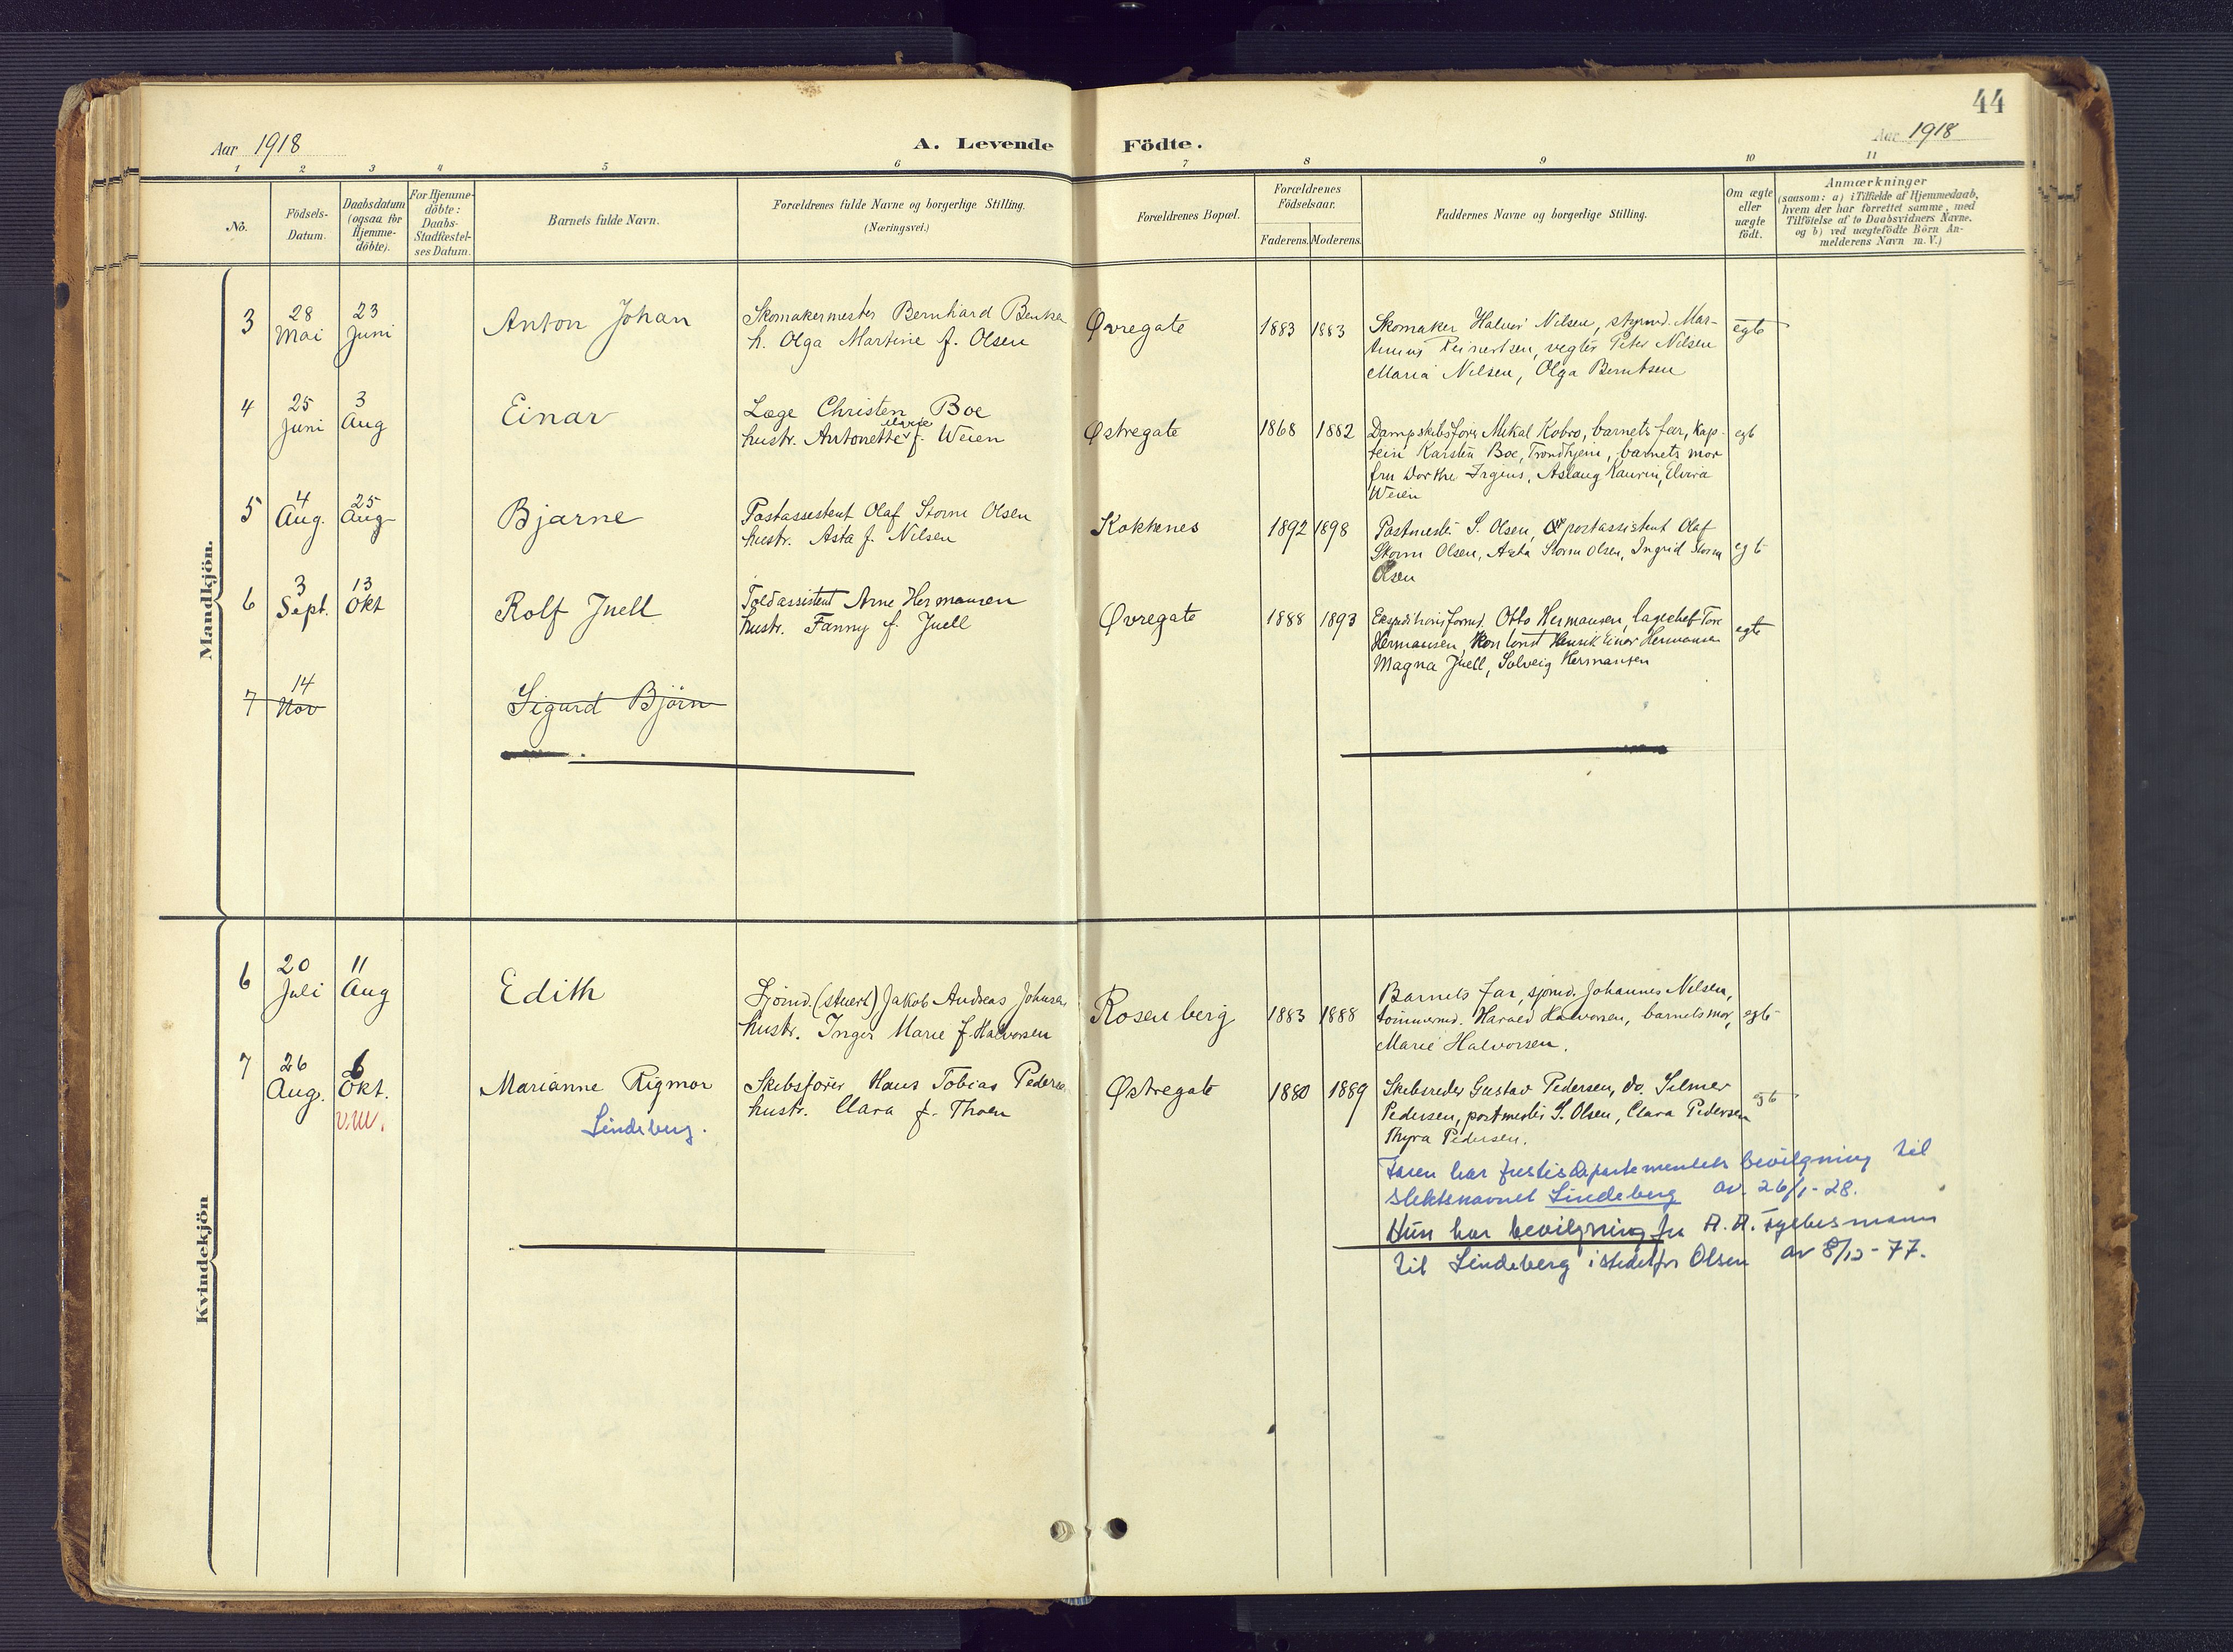 44
Aar 1918
A. Levende Födte.
Aar 1918
1 2 3 4 5 6 7 8 9 10 11
No.
Födsels-
Datum.
Daabsdatum
(ogsaa for
Hjemme-
döbte).
For Hjemme-
döbte:
Daabs-
Stadfæstel-
ses Datum.
Barnets fulde Navn.
Forældrenes fulde Navne og borgerlige Stilling.
(Næringsvei.)
Forældrenes Bopæl.
Forældrenes
Födselsaar.
Faderens. Moderens.
Faddernes Navne og borgerlige Stilling.
Om ægte
eller
uægte
födt.
Anmærkninger
(saasom: a) i Tilfælde af Hjemmedaab,
hvem der har forrettet samme, med
Tilföielse af to Daabsvidners Navne.
og b) ved uægtefödte Börn An-
melderens Navn m. V.)
Mandkjön.
3
28
Mai
23
Juni
Anton Johan
Skomakermester Bernhard
h. Olga Martine f. Olsen
Øvregate
1883 1883
Skomaker Halvor Nilsen, styrmd. Mar-
Reinertsen, vegter Peter Nilsen
Maria Nilsen, Olga Berntsen
egte
4
25
Juni
3
Aug
Einar
Læge Christen Boe
hustr. Antonette Marie f. Weien
Østregate
1868 1882
Dampskibsförer Mikal Kobro, barnets far, Kap-
tein Karsten Boe, Trondhjem, barnets mor
fru Dorthe Irgens, Aslaug Kaurin, Elvira
Weien
egte
5
4
Aug.
25
Aug
Bjarne
Postassistent Olaf Storm Olsen
hustr. Asta f. Nilsen
Kokkenes
1892 1898
Postmester S. Olsen, postassistent Olaf
Storm Olsen, Asta Storm Olsen, Ingrid Storm
Olsen
egte
6
3
Sept.
13
Okt
Rolf Juell
Toldassistent Arne Hermansen
hustr. Fanny f. Juell
Øvregate
1888 1893
Ekspeditionsformd. Otto Hermansen, lagerchef Tore
Hermansen, Henrik Einar Hermansen
Magna Juell, Solveig Hermansen
egte
7
14
Nov
Sigurd Björn
Kvindekjön
6
20
Juli
11
Aug
Edith
Sjömd. (stuert) Jakob Andreas Johnsen
hustr. Inger Marie f. Halvorsen
Rosenberg
1883 1888
Barnets far, sjömd. Johannes Nilsen,
tömmermd. Harald Halvorsen, barnets mor,
Marie Halvorsen.
egte
7
26
Aug.
6
Okt.
v.nr.
Marianne Rigmor
Lindeberg.
Skibsförer Hans Tobias Pedersen
hustr. Clara f. Thoen
Østregate
1880 1889
Skibsreder Gustav Pedersen, do. Selmer
Pedersen, postmester S. Olsen, Clara Pedersen
Thyra Pedersen.
egte
Faren har Justisdepartementets bevilgning til
slektsnavnet Lindeberg av 26/1-28.
Hun har bevilgning fra A. A. Fylkesmann
til Lindeberg istedetfor Olsen av 8/12-77.